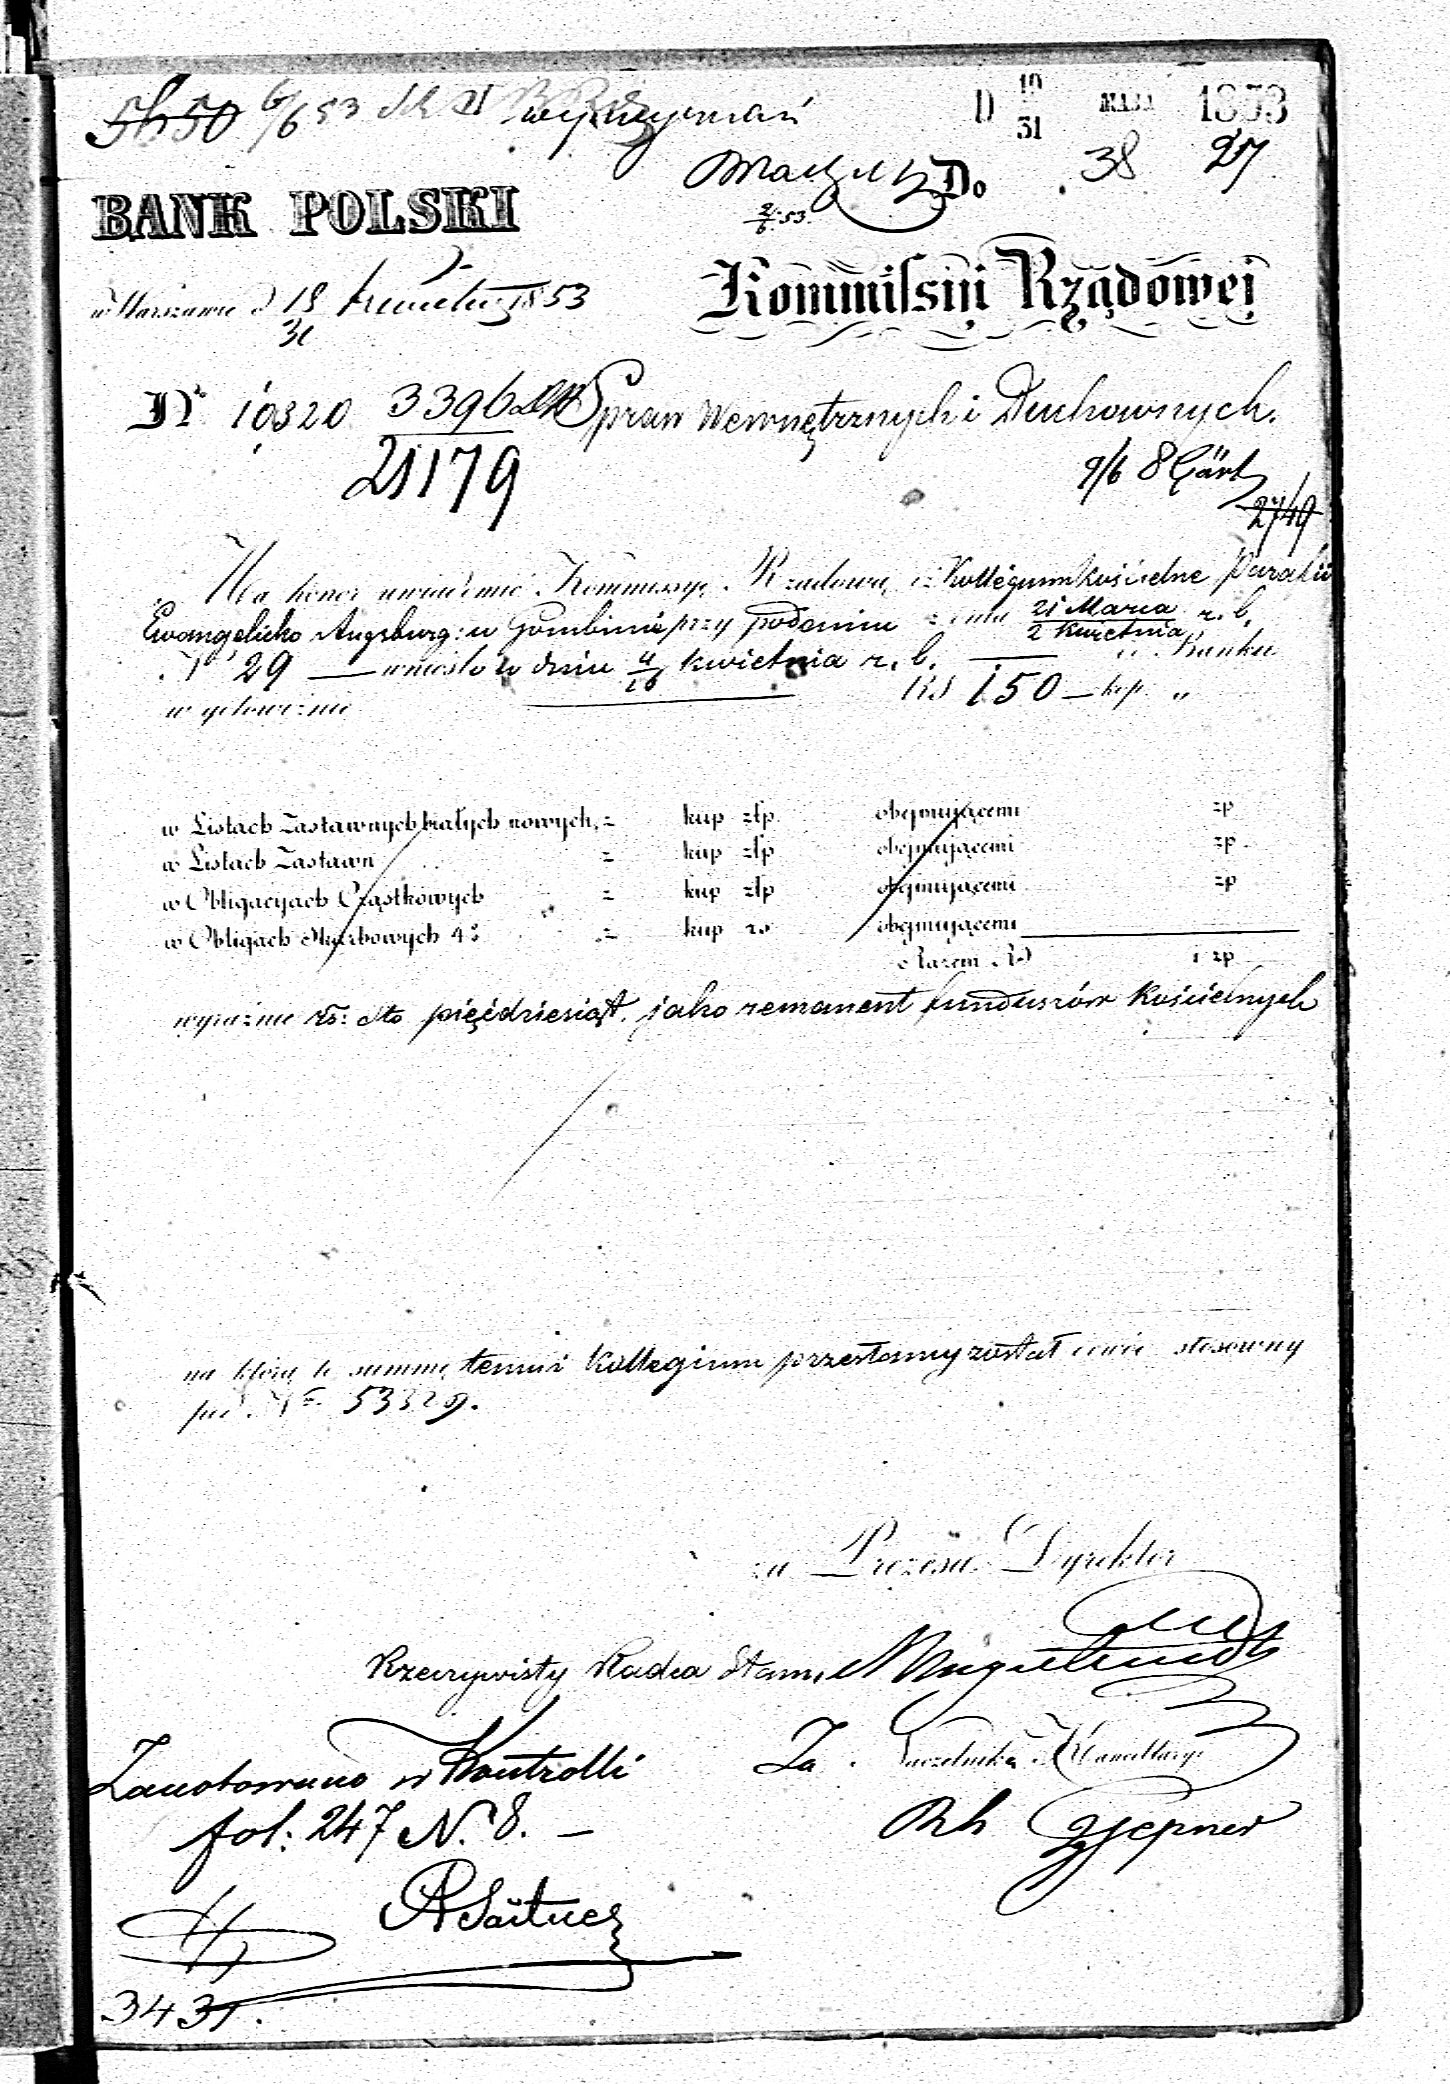 5650 6/6 53
D 19/31 MAJA 1853
38 27
Do
2/6 53.
BANK POLSKI
w Warszawie d 18/30 Kwietnia 1853
Kommissii Rządowej
Nr 10320 3396
Spraw Wewnętrznych i Duchownych.
21179
9/6 8
2749
Ma honor uwiadomić Kommissyę Rządową, iż Kollegium kościelne Parafii
Ewangelicko Augsburg: w Gombinie przy podaniu z dnia 21 Marca / 2 Kwietnia r. b.
Nr 29 — wniosło w dniu 4/16 kwietnia r. b. — do Banku
w gotowiźnie RS 150 — kop. „
w Listach Zastawnych białych nowych, = kup złp obejmującemi zp
w Listach Zastawn = kup złp obejmującemi zp
w Obligacyach Cząstkowych = kup złp obejmującemi zp
w Obligach Skarbowych 4% = kup rs obejmującemi
Razem RS i zp
wyraźnie rs: sto pięćdziesiąt. jako remanent funduszów Kościelnych
na którą to summę temuż Kollegium przesłany został kwit stosowny
pod Nr 53329.
za Prezesa Dyrektor
Rzeczywisty Radca Stanu
Zanotowano w Kontrolli
Za Naczelnika Kancellaryi
fol: 247 N. 8. —
3431.